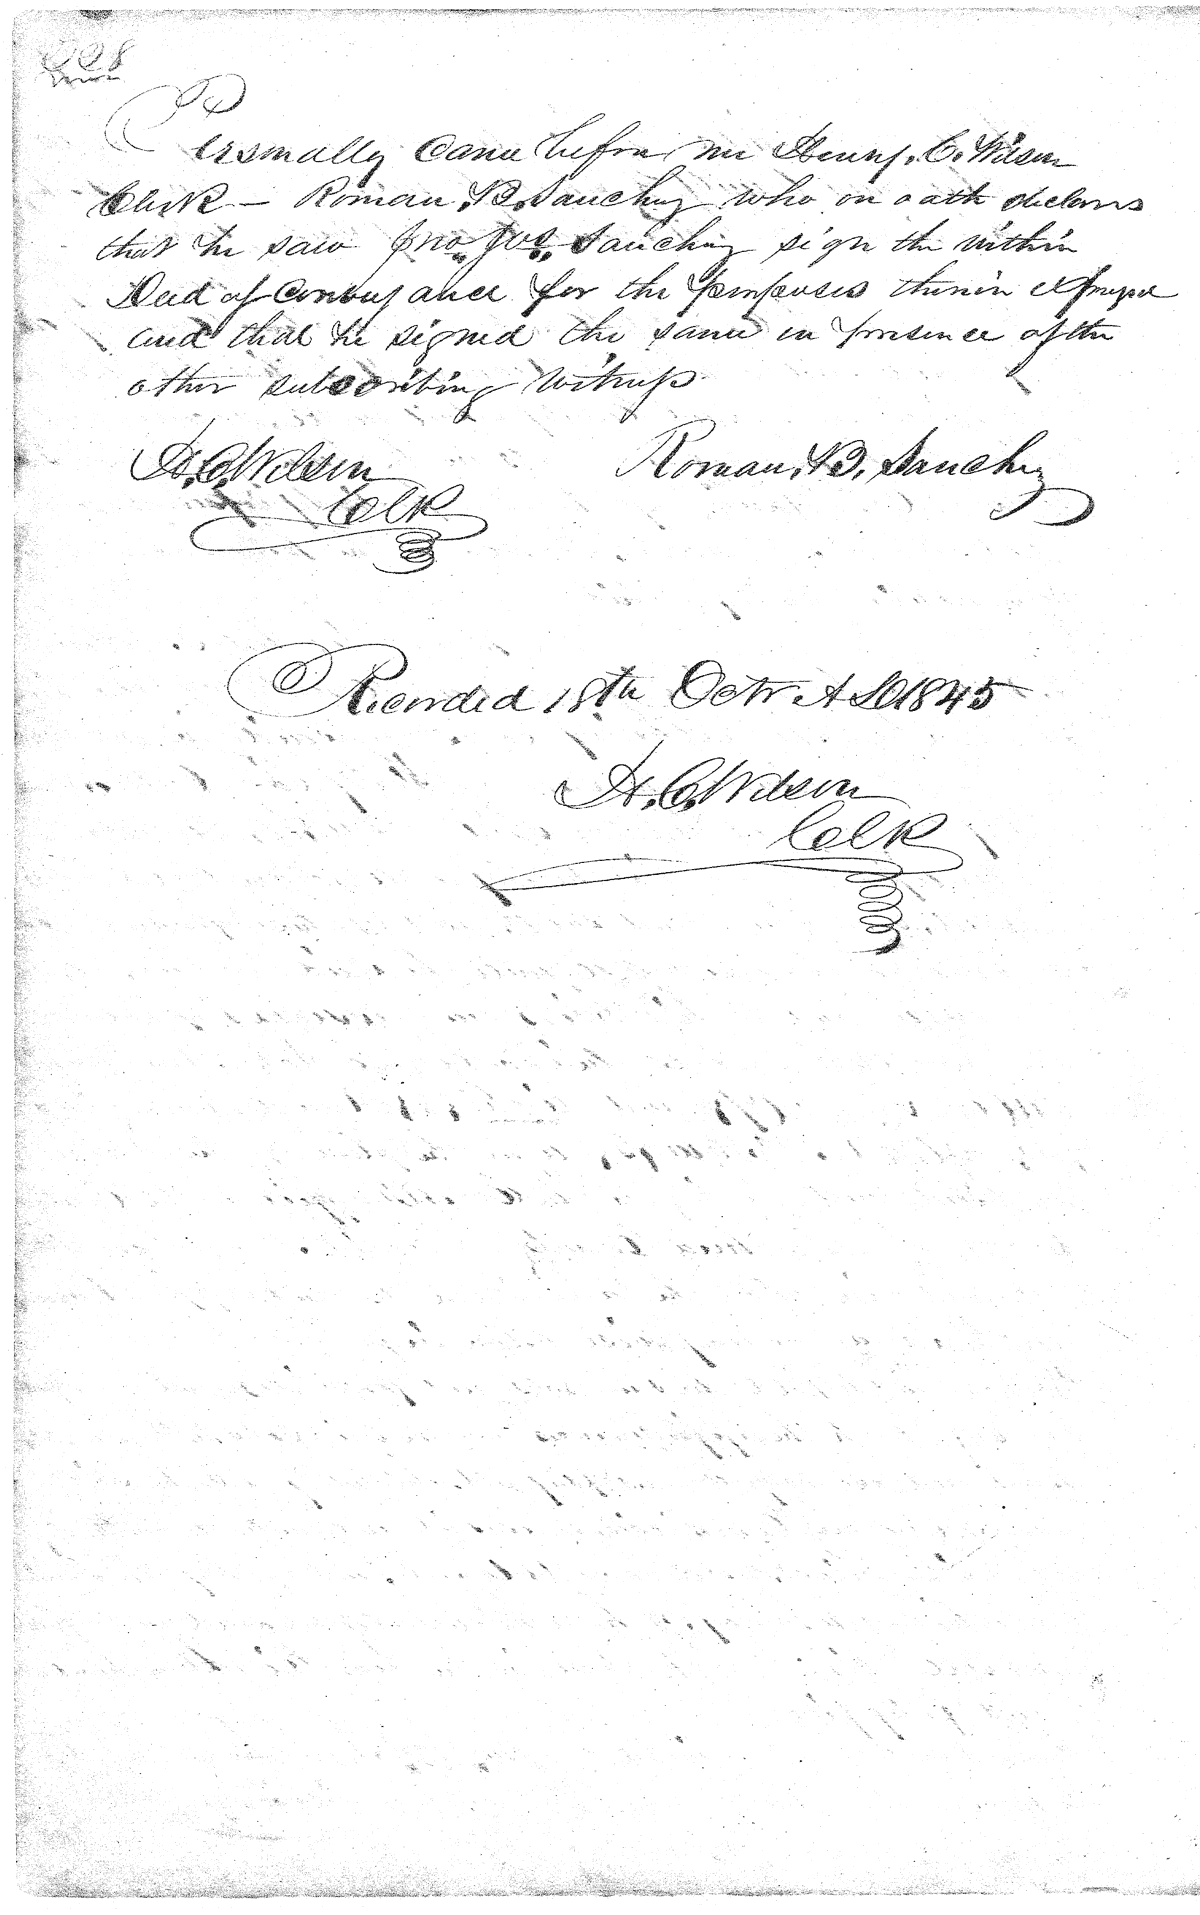 Personally Came before me Henry. C. Wilson
Clerk — Roman. B. Sanchez who on oath declares
that he saw Jno Jos. Sanchez sign the within
Deed of Conveyance for the purposes therein expressed
and that he signed the same in presence of the
other subscribing witness
H. C. Wilson Roman. B. Sanchez
Clk
Recorded 18th Octr A D 1845
H. C. Wilson
Clk